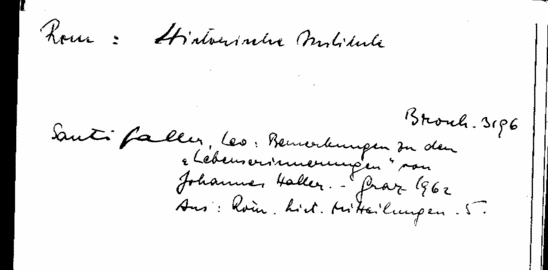 Rom : Historische Institute
Brosch. 3196
Santifaller, Leo: Bemerkungen zu den
"Lebenserinnerungen" von
Johannes Haller. - Graz 1962
Aus: Röm. hist. Mitteilungen. 5.